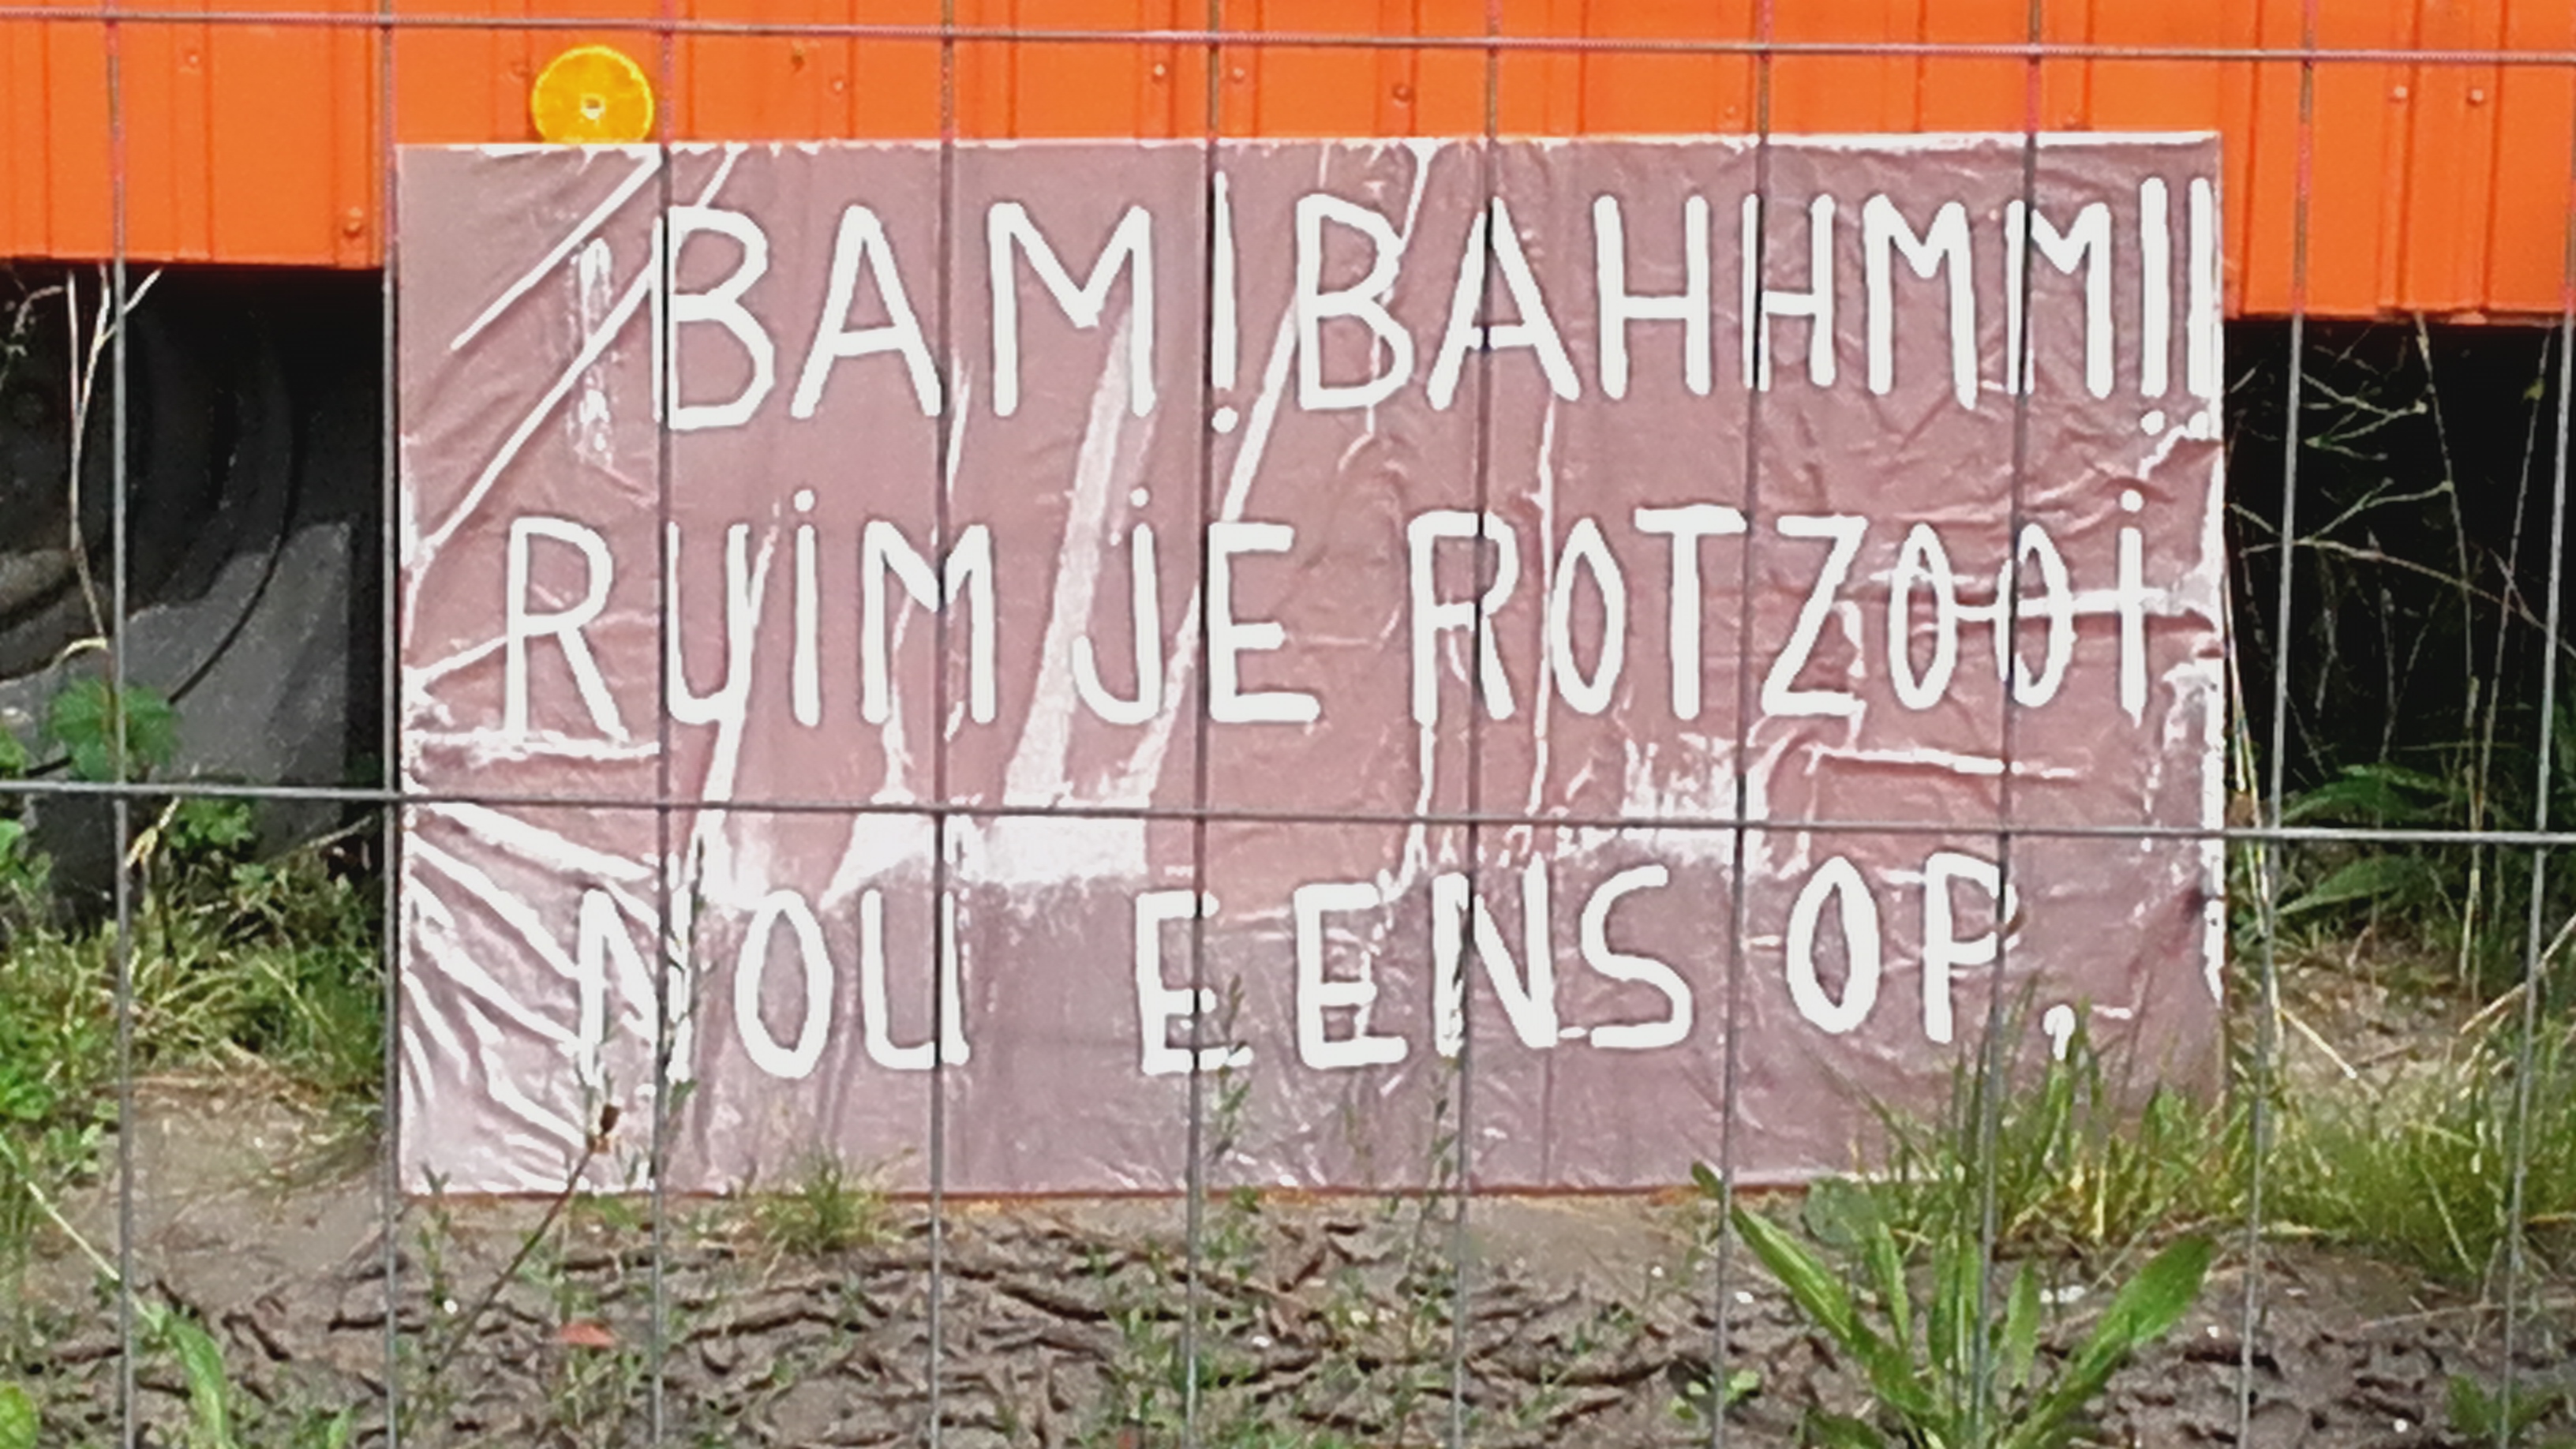 BAM! BAHHMM!!
RUIM JE ROTZOOI
NOU EENS OP,